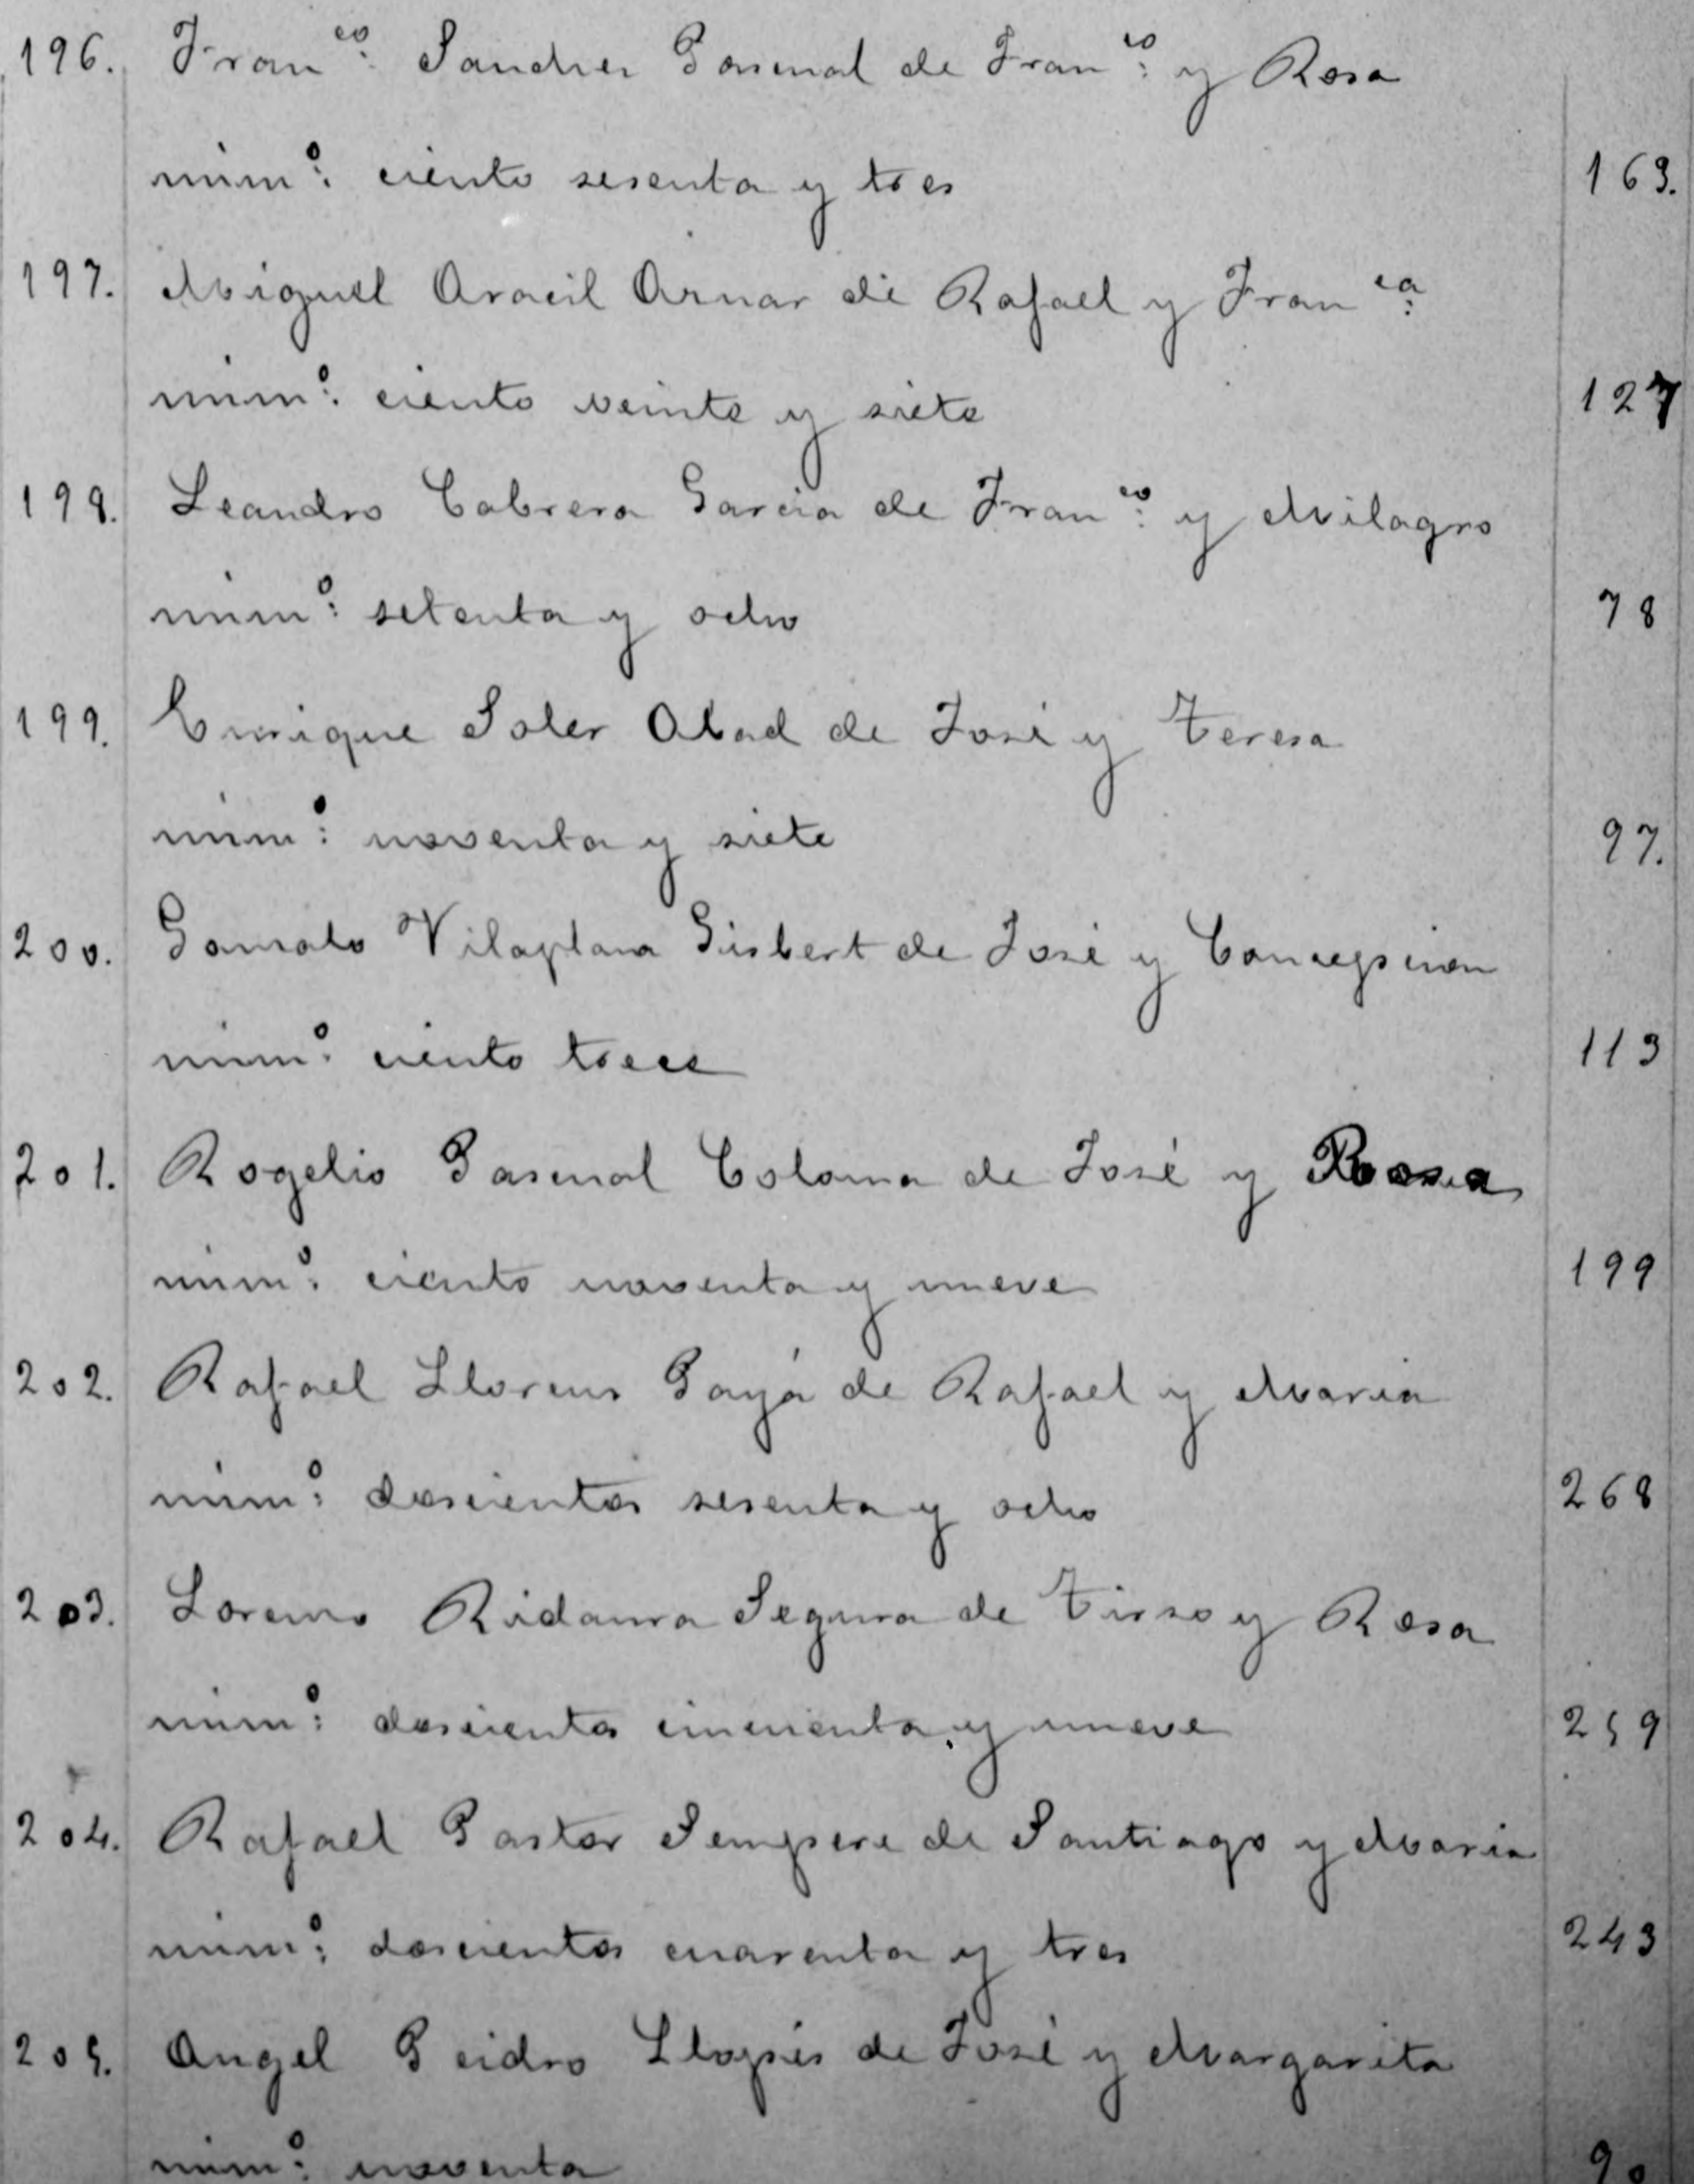 196. Franco: Sanches Pascual de Franco: y Rosa
núm°: ciento sesenta y tres 163.
197. Miguel Aracil Aznar de Rafael y Franca:
núm°: ciento veinte y siete 127
198. Leandro Cabrera Garcia de Franco: y Milagro
núm°: setenta y ocho 78
199. Enrique Soler Abad de José y Teresa
núm°: noventa y siete 97.
200. Gonzalo Vilaplana Gisbert de José y Concepcion
núm°: ciento trece 113
201. Rogelio Pascual Coloma de José y Rosa
núm°: ciento noventa y nueve 199
202. Rafael Llorens Payá de Rafael y Maria
núm°: doscientos sesenta y ocho 268
203. Lorenzo Ridaura Segura de Tirso y Rosa
núm°: doscientos cincuenta y nueve 259
204. Rafael Pastor Sempere de Santiago y Maria
núm°: doscientos cuarenta y tres 243
205. Angel Peidro Llopis de José y Margarita
núm°: noventa 90